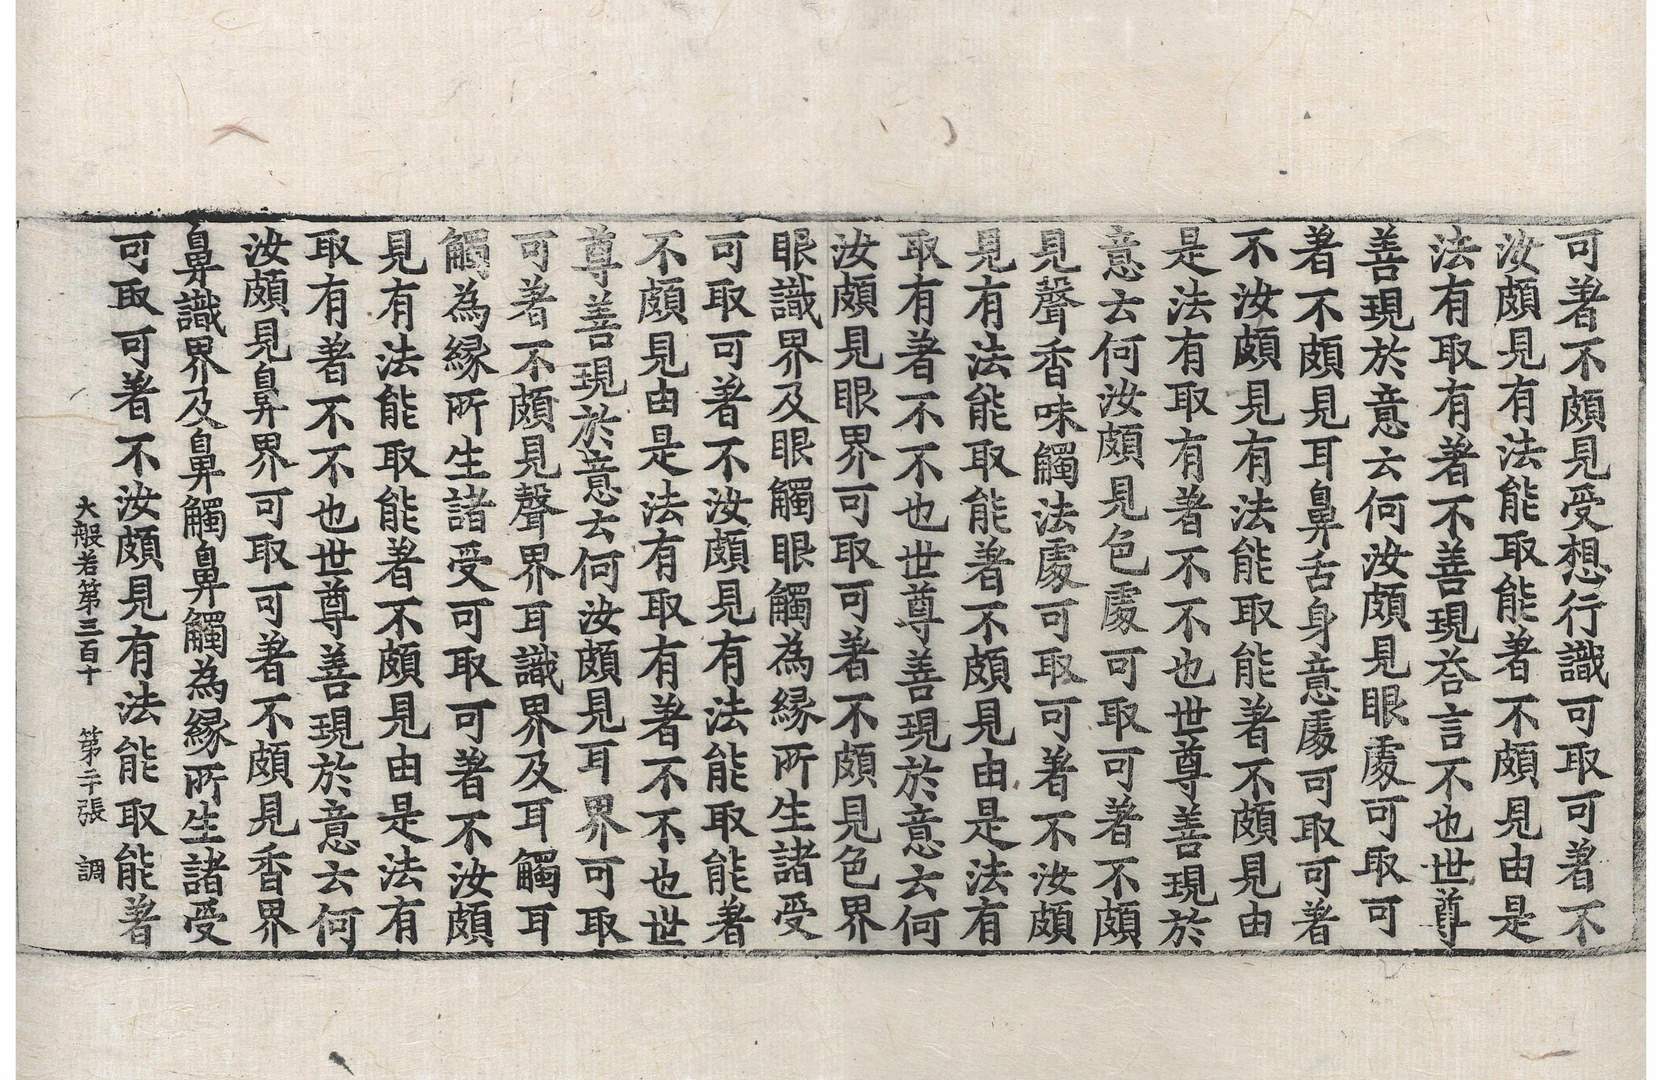 可著不頗見受想行識可取可著不
汝頗見有法能取能著不頗見由是
法有取有著不善現荅言不也世尊
善現於意云何汝頗見眼處可取可
著不頗見耳鼻舌身意處可取可著
不汝頗見有法能取能著不頗見由
是法有取有著不不也世尊善現於
意云何汝頗見色處可取可著不頗
見聲香味觸法處可取可著不汝頗
見有法能取能著不頗見由是法有
取有著不不也世尊善現於意云何
汝頗見眼界可取可著不頗見色界
眼識界及眼觸眼觸為緣所生諸受
可取可著不汝頗見有法能取能著
不頗見由是法有取有著不不也世
尊善現於意云何汝頗見耳界可取
可著不頗見聲界耳識界及耳觸耳
觸為緣所生諸受可取可著不汝頗
見有法能取能著不頗見由是法有
取有著不不也世尊善現於意云何
汝頗見鼻界可取可著不頗見香界
鼻識界及鼻觸鼻觸為緣所生諸受
可取可著不汝頗見有法能取能著
大般若第三百十 第二張 調